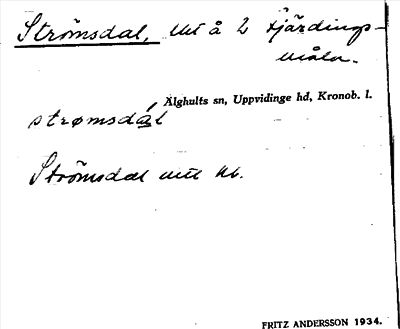 Strömsdal, litt å 2 Fjärdings-
måla.
Älghults sn, Uppvidinge hd, Kronob. l.
strømsdál
Strömsdal
FRITZ ANDERSSON 1934.